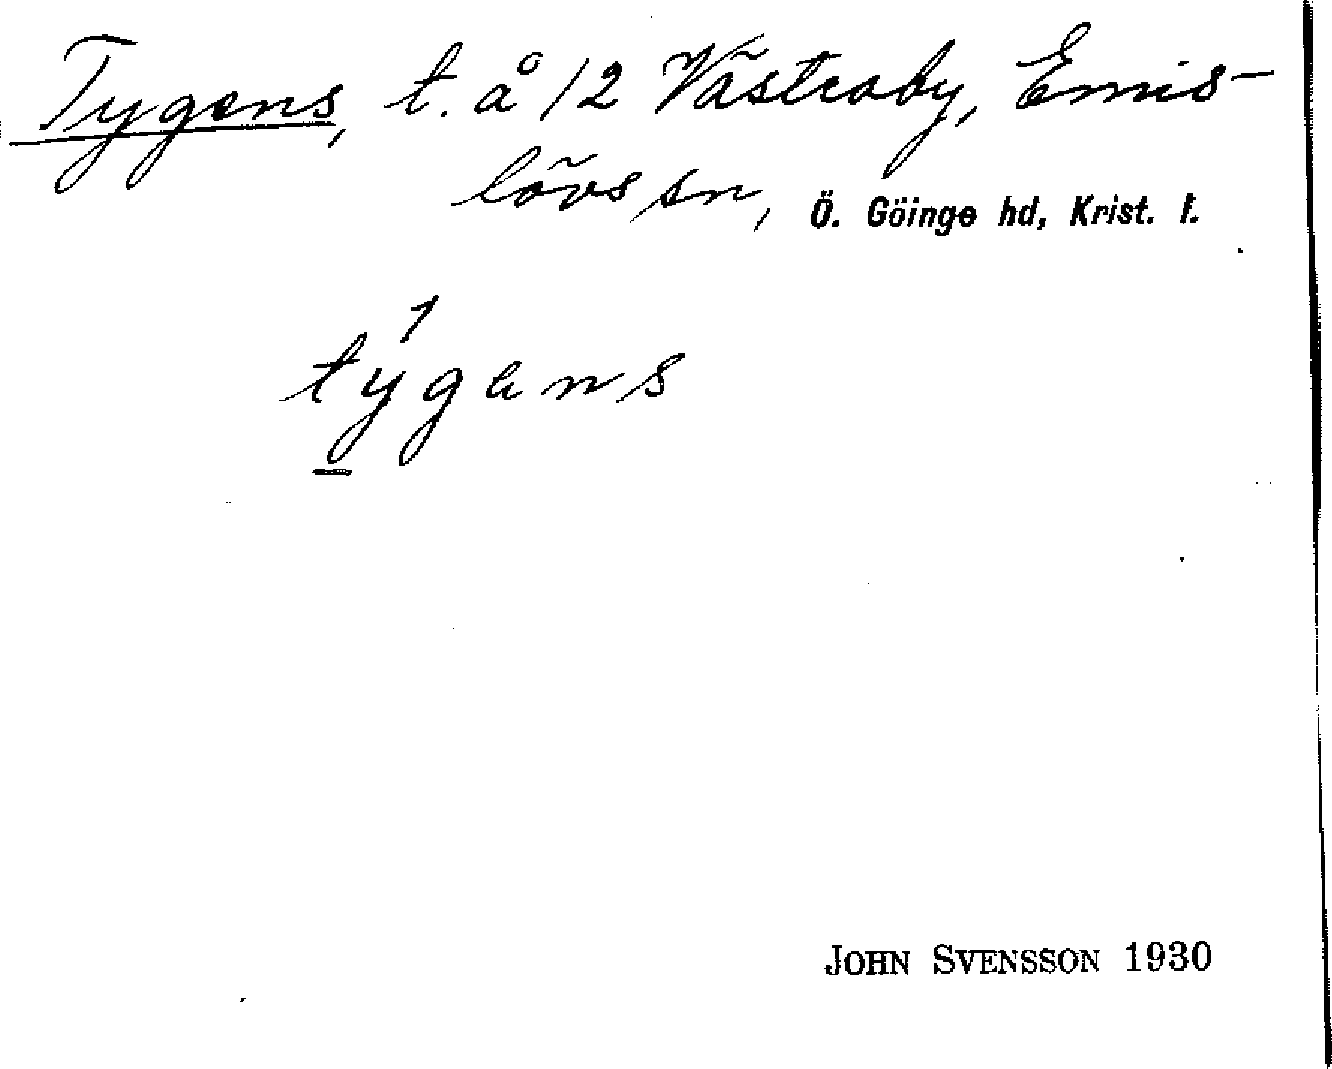 Tygens, t. å 12 Västraby, Emis-
lövs sn, Ö. Göinge hd, Krist. l.
tygens
JOHN SVENSSON 1930